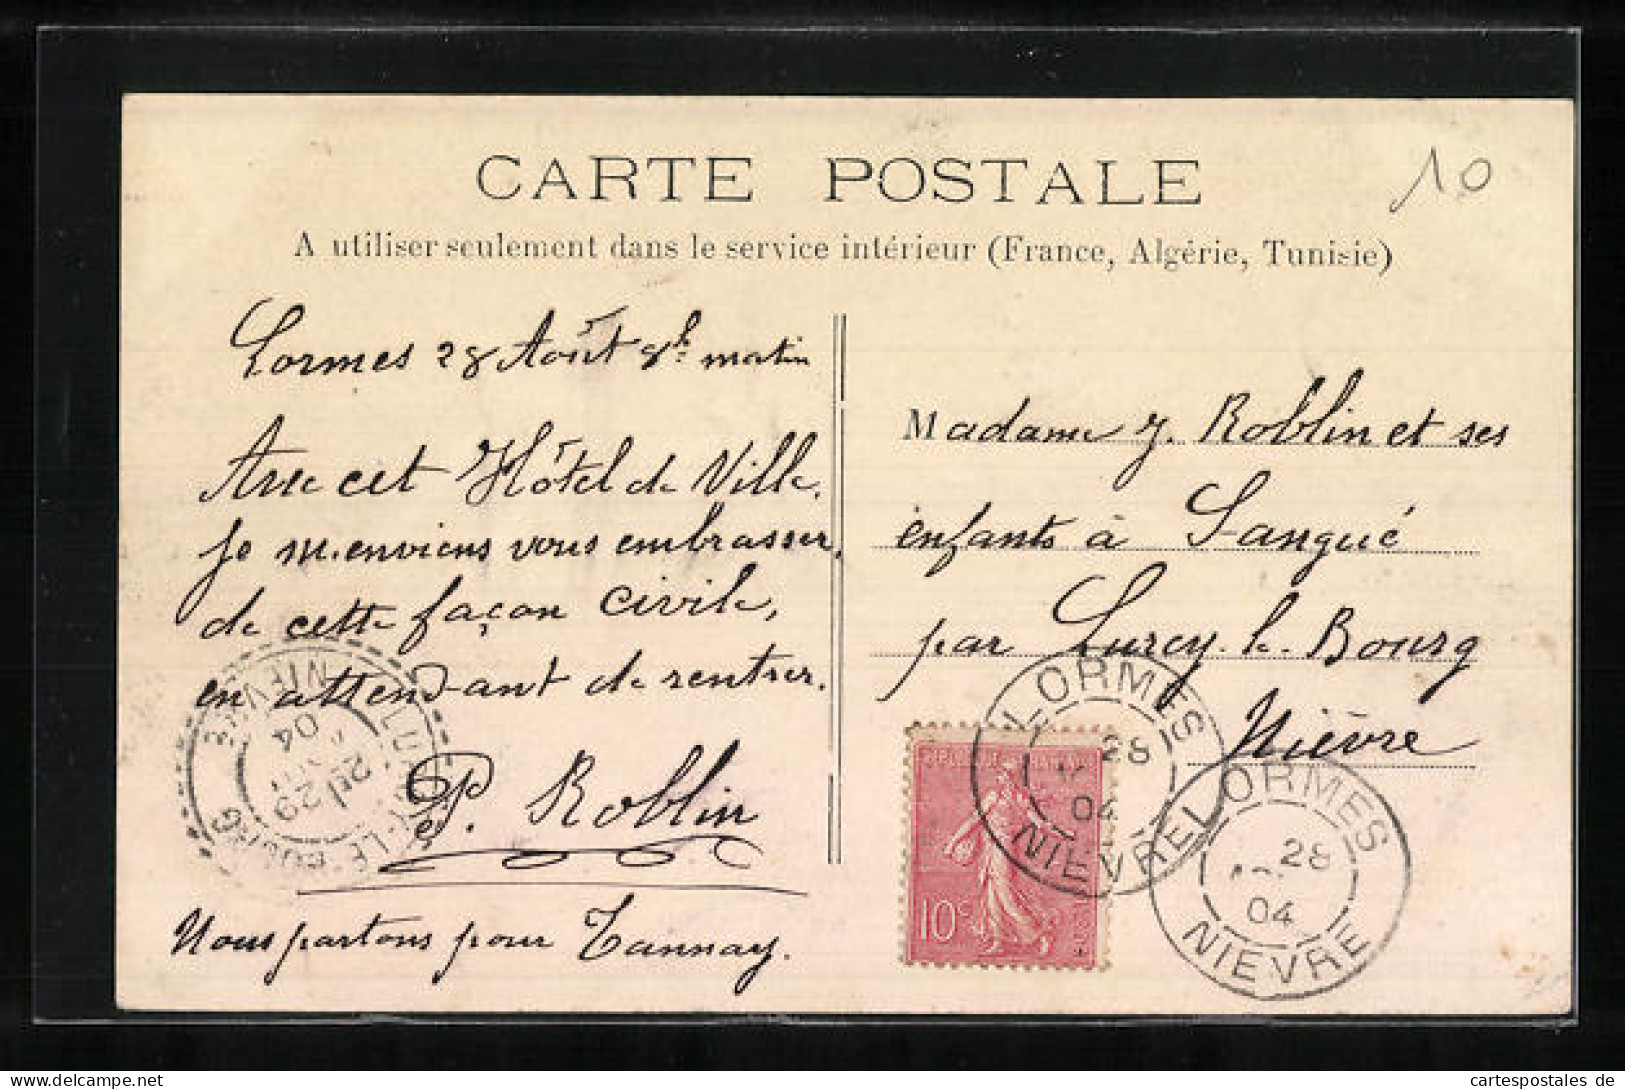 CARTE POSTALE
10
A utiliser seulement dans le service intérieur (France, Algérie, Tunisie)
Lormes 28 Août 8h matin
Avec cet Hôtel de Ville,
je m'enviens vous embrasser,
de cette façon civile,
en attendant de rentrer.
P. Roblin
Nous partons pour Tannay.
Madame J. Roblin et ses
enfants à Sangué
par Lurcy-le-Bourg
Nièvre
LORMES
28
04
NIEVRE
LORMES
28
04
NIEVRE
10c
LURCY-LE-BOURG
29
04
NIEVRE
cartespostales de